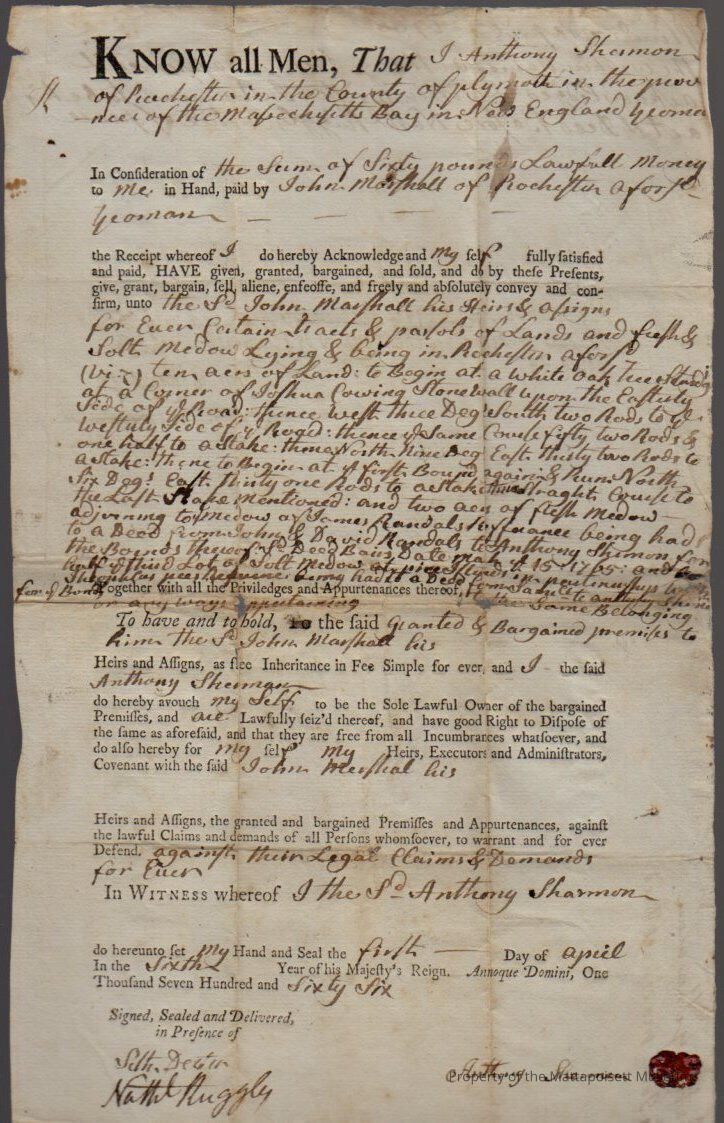 KNOW all Men, That I Anthony Shermon
of Rochester in the County of plymoth in the prov
nce of the Massechusetts Bay in New England yeoma
In Consideration of the Sum of Sixty pounds Lawfull Money
to me in Hand, paid by John Marshall of Rochester aforsd
yeoman
the Receipt whereof I do hereby Acknowledge and my self fully satisfied
and paid, HAVE given, granted, bargained, and sold, and do by these Presents,
give, grant, bargain, sell, aliene, enfeoffe, and freely and absolutely convey and con-
firm, unto the Sd John Marshall his Heirs & assigns
for Ever Certain tracts & parsols of Lands and fresh &
Solt Medow Lying & being in Rochester aforsd
(viz) ten acers of Land: to Begin at a white oak tree
at a Corner of Joshua Cowing Stonewall upon the Easterly
Side of ye Road: thence west thee Deg South two Rods to ye
westerly Side of ye Roged: thence ye Same Course fifty two Rods &
one half to a Stake: thence North Nine Deg East thirty two Rods to
a Stake: thene to Begin at ye first Bound again & Run North
Six Degs East thirty one Rods to a Stake thence Straght Course to
the Last Stake mentioned: and two acers of fresh Medow
adjoining to Medow of James Randals being had
to a Deed from John & David Randals to Anthony Shermon for
the Bounds thereof Sd Deed Bairs Date
third Lot of Solt Medow 15 1765: and
being had to a Deed
for ye Bounds Together with all the Priviledges and Appurtenances thereof,
or any ways appertaining the Same Belonging
To have and to hold, To the said granted & Bargained premises to
him the Sd John Marshall his
Heirs and Assigns, as free Inheritance in Fee Simple for ever, and I the said
Anthony Sherman
do hereby avouch my Self to be the Sole Lawful Owner of the bargained
Premisses, and are Lawfully seiz'd thereof, and have good Right to Dispose of
the same as aforesaid, and that they are free from all Incumbrances whatsoever, and
do also hereby for my self my Heirs, Executors and Administrators,
Covenant with the said John Marshal his
Heirs and Assigns, the granted and bargained Premisses and Appurtenances, against
the lawful Claims and demands of all Persons whomsoever, to warrant and for ever
Defend, against their Legal Claims & Demands
for Ever
In WITNESS whereof I the Sd Anthony Sharmon
do hereunto set my Hand and Seal the first Day of april
In the Sixth Year of his Majesty's Reign. Annoque Domini, One
Thousand Seven Hundred and Sixty Six
Signed, Sealed and Delivered,
in Presence of
Seth Dexter
Nathl Ruggles
Anthony Sherman
Property of the Mattapoisett M